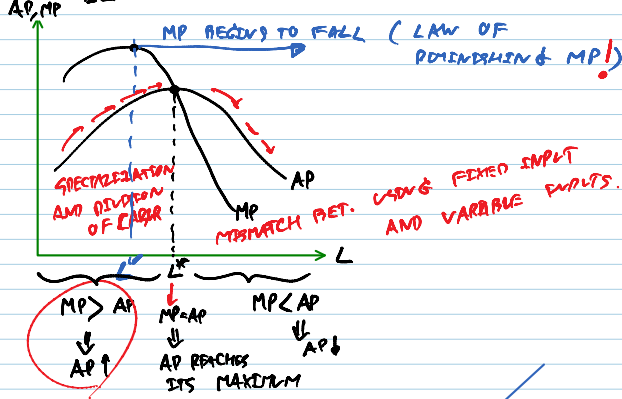 AP, MP
MP BEGINS TO FALL ( LAW OF
DIMINISHING MP!)
SPECIALIZATION
AND DIVISION
OF LABOR
AP
MP
MISMATCH BET. USING FIXED INPUT
AND VARIABLE INPUTS.
L
L*
MP > AP
MP=AP
MP < AP
AP ↑
AP REACHES
ITS MAXIMUM
AP ↓